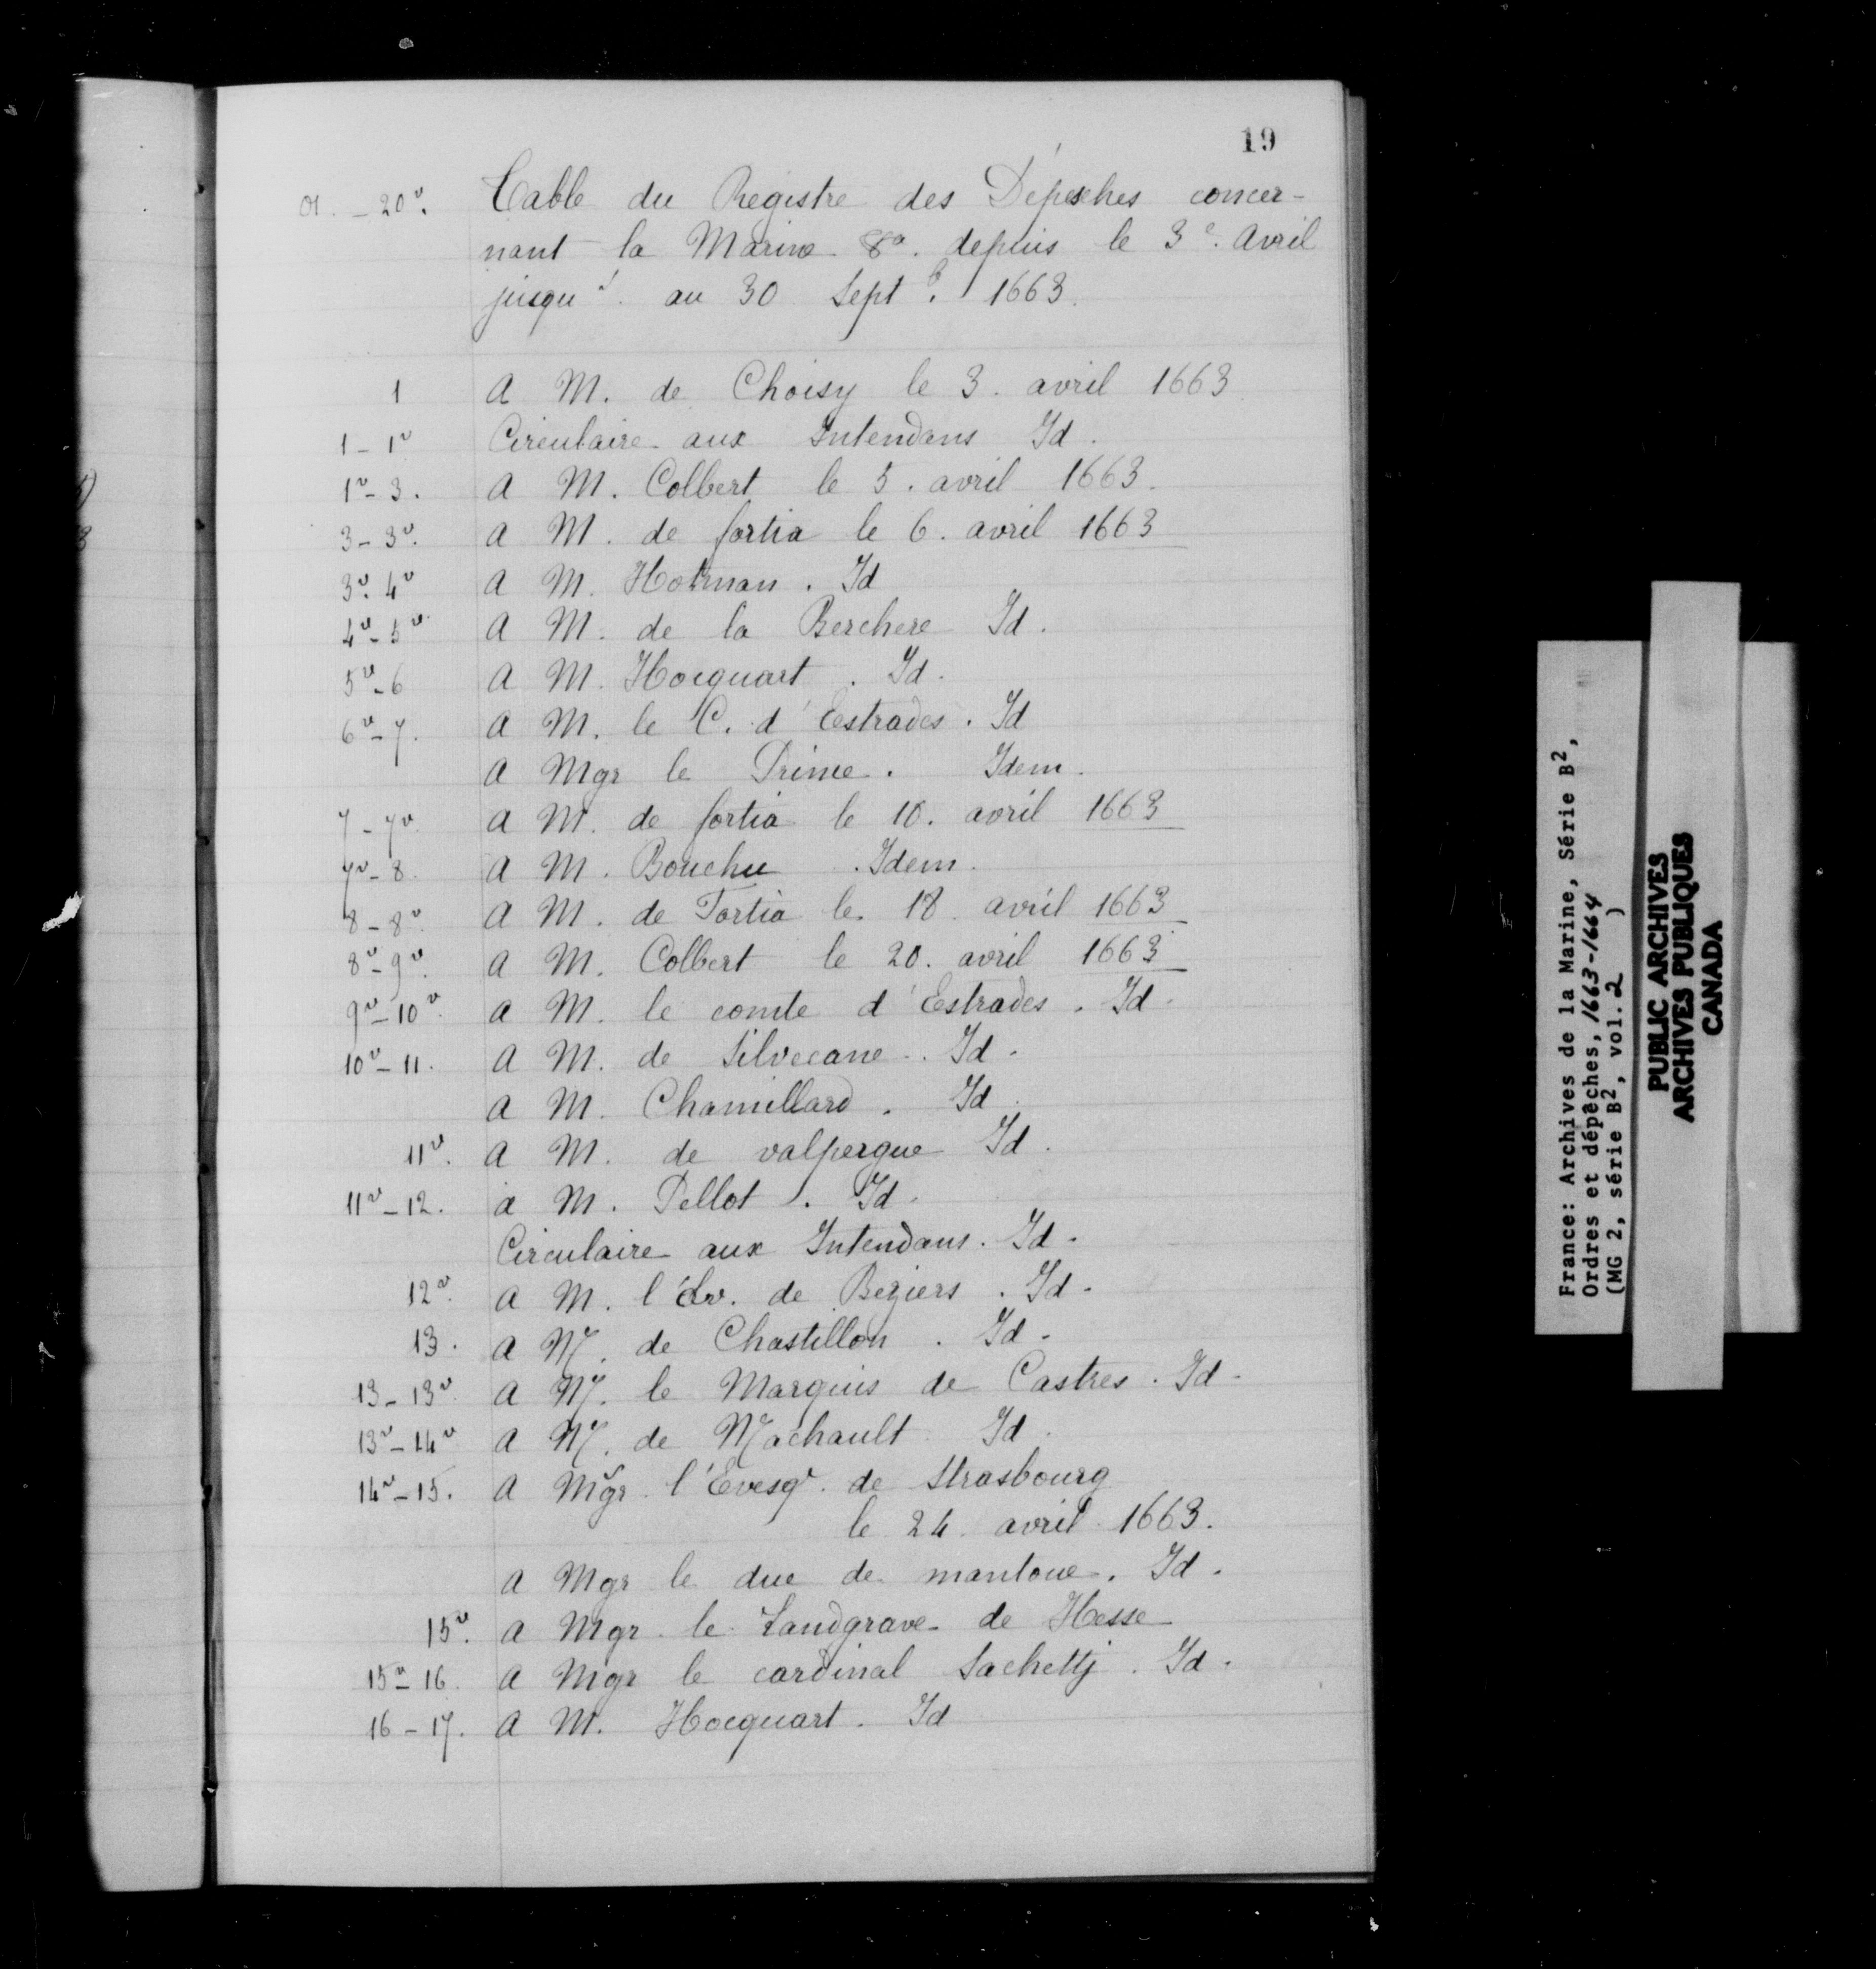 19
01. - 20v. Table du Registre des Dépesches concer-
nant la Marine 8a. depuis le 3e. Avril
jusqu'. au 30 Sept b. 1663.
1 A M. de Choisy le 3. avril 1663
1 - 1v Circulaire aux Intendans Id.
1v - 3. A M. Colbert le 5. avril 1663.
3 - 3v. A M. de fortia le 6. avril 1663
3v. 4v A M. Hotman. Id
4v - 5v A M. de la Berchere Id.
5v - 6 A M. Hocquart. Id.
6v - 7. A M. le C. d'Estrades. Id
A Mgr le Prince. Idem.
7 - 7v. A M. de fortia le 10. avril 1663
7v - 8. A M. Bouchu. Idem.
8 - 8v. A M. de Fortia le 18. avril 1663
8v - 9v. A M. Colbert le 20. avril 1663
9v - 10v. a M. le comte d'Estrades. Id.
10v - 11. A M. de Silvecane. Id.
A M. Chamillard. Id.
11v. A M. de valpergue Id.
11v - 12. a M. Pellot. Id.
Circulaire aux Intendans. Id.
12v. A M. l'Ev. de Beziers. Id.
13. A M. de Chastillon. Id.
13 - 13v. A M. le Marquis de Castres. Id.
13v - 14v A M. de Machault Id.
14v - 15. A Mgr. l'Evesq' de Strasbourg
le 24. avril 1663.
A Mgr le duc de mantoue. Id.
15v. A Mgr. le Landgrave de Hesse
15v - 16. A Mgr le cardinal Sachettj. Id.
16 - 17. A M. Hocquart. Id
France: Archives de la Marine, Série B2,
Ordres et dépêches, 1663-1664
(MG 2, série B2, vol. 2 )
PUBLIC ARCHIVES
ARCHIVES PUBLIQUES
CANADA